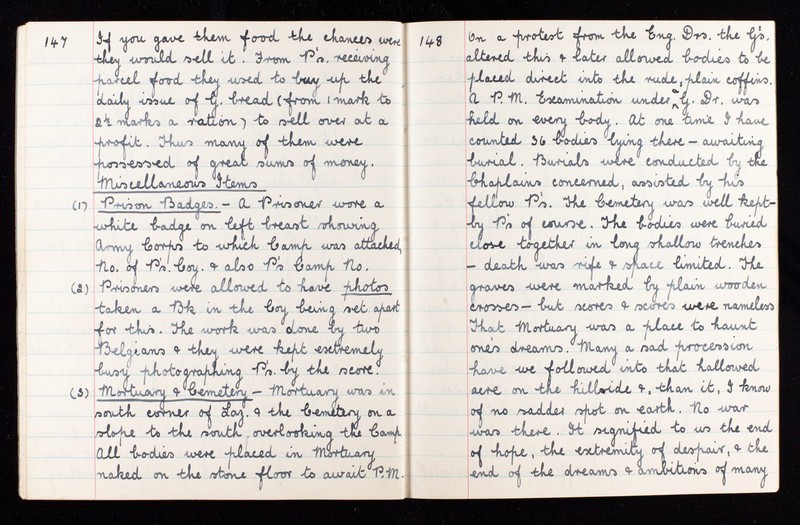 147
If you gave them food the chances were
they would sell it. From P's. receiving
parcel food they used to buy up the
daily issue of G. bread (from 1 mark to
2½ marks a ration) to sell over at a
profit. Thus many of them were
possessed of great sums of money.
Miscellaneous Items
(1) Prison Badges. – A Prisoner wore a
white badge on left breast showing
Army Corps to which Camp was attached,
No. of P's. Coy. & also P's Camp No.
(2) Prisoners were allowed to have photos
taken a Bk in the Coy being set apart
for this. The work was done by two
Belgians & they were kept extremely
busy photographing P's. by the score.
(3) Mortuary & Cemetery – Mortuary was in
south corner of Laz. & the Cemetery on a
slope to the south, overlooking the Camp.
All bodies were placed in Mortuary
naked on the stone floor to await P.M.
148
On a protest from the Eng. Drs. the G's.
altered this & later allowed bodies to be
placed direct into the rude, plain coffins.
A P.M. Examination under a G. Dr. was
held on every body. At one time I have
counted 36 bodies lying there – awaiting
burial. Burials were conducted by the
Chaplains concerned, assisted by his
fellow P's. The Cemetery was well kept –
by P's of course. The bodies were buried
close together in long shallow trenches
– death was rife & space limited. The
graves were marked by plain wooden
crosses – but scores & scores were nameless
That Mortuary was a place to haunt
one's dreams. Many a sad procession
have we followed into that hallowed
acre on the hillside &, than it, I know
of no sadder spot on earth. No war
was there. It signified to us the end
of hope, the extremity of despair, & the
end of the dreams & ambitions of many